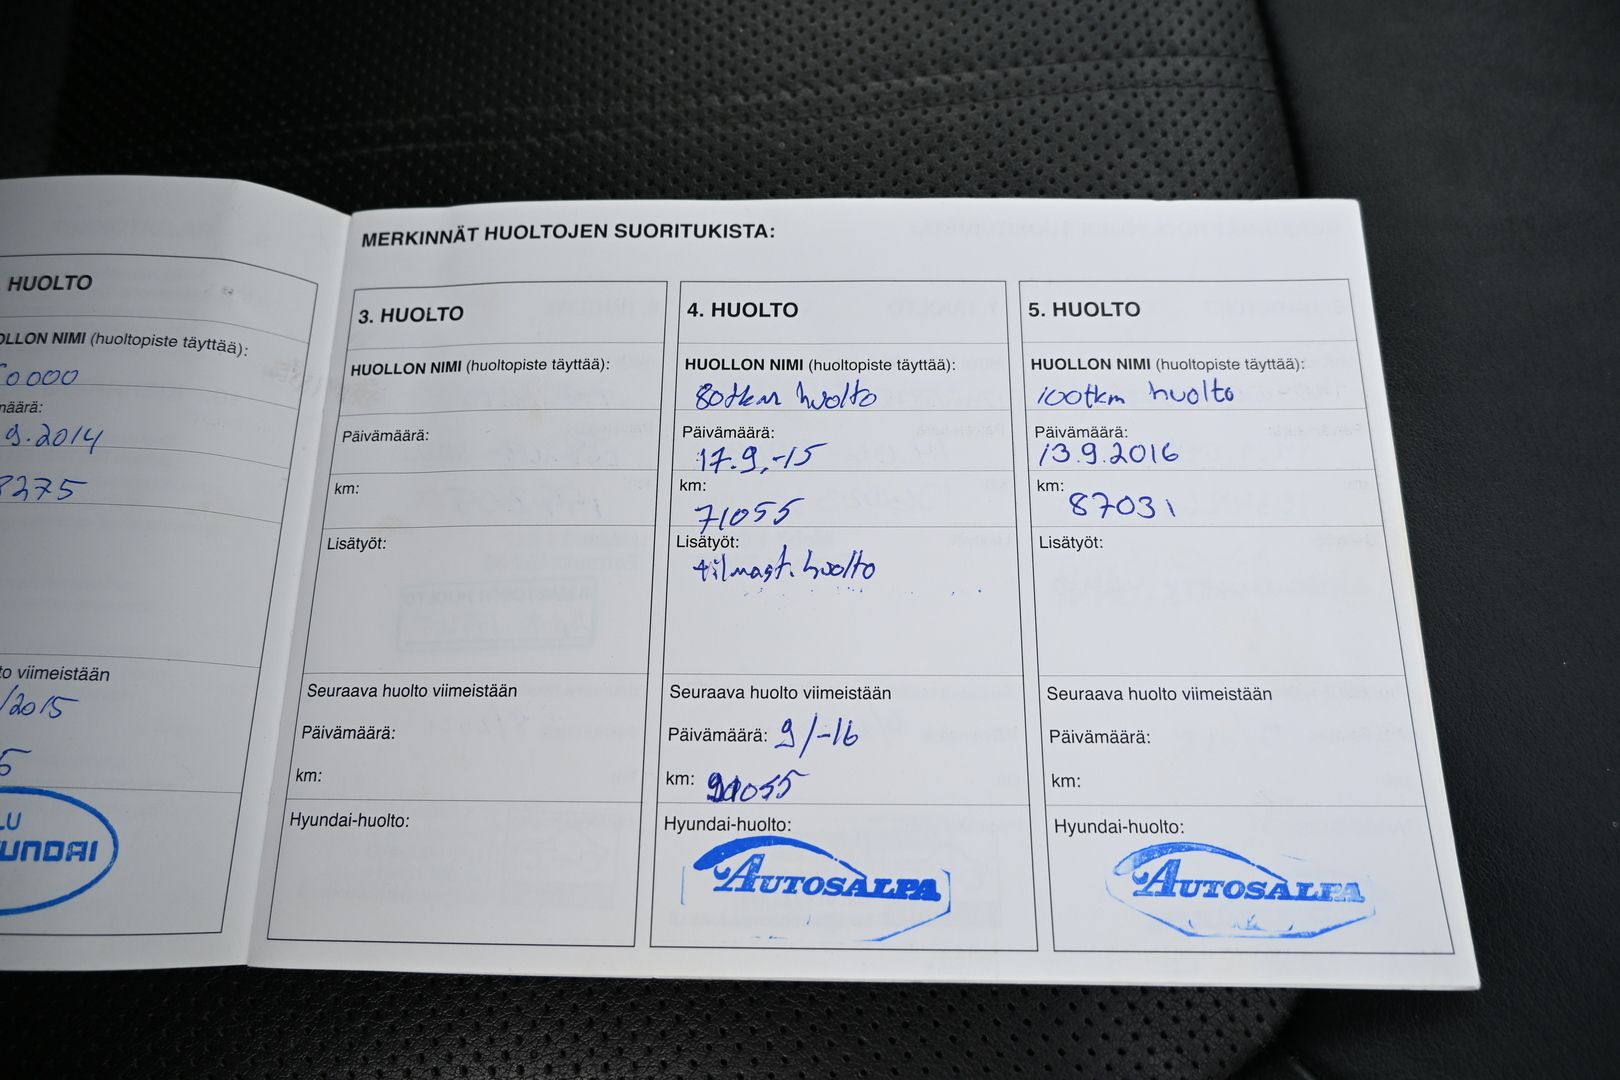 HUOLTO
OLLON NIMI (huoltopiste täyttää):
0000
määrä:
9.2014
8275
to viimeistään
/2015
5
LU
UNDAI
MERKINNÄT HUOLTOJEN SUORITUKISTA:
3. HUOLTO
HUOLLON NIMI (huoltopiste täyttää):
Päivämäärä:
km:
Lisätyöt:
Seuraava huolto viimeistään
Päivämäärä:
km:
Hyundai-huolto:
4. HUOLTO
HUOLLON NIMI (huoltopiste täyttää):
80tkm huolto
Päivämäärä:
17.9.-15
km:
71055
Lisätyöt:
+ilmast. huolto
Seuraava huolto viimeistään
Päivämäärä: 9/-16
km: 91055
Hyundai-huolto:
AUTOSALPA
5. HUOLTO
HUOLLON NIMI (huoltopiste täyttää):
100tkm huolto
Päivämäärä:
13.9.2016
km:
87031
Lisätyöt:
Seuraava huolto viimeistään
Päivämäärä:
km:
Hyundai-huolto:
AUTOSALPA